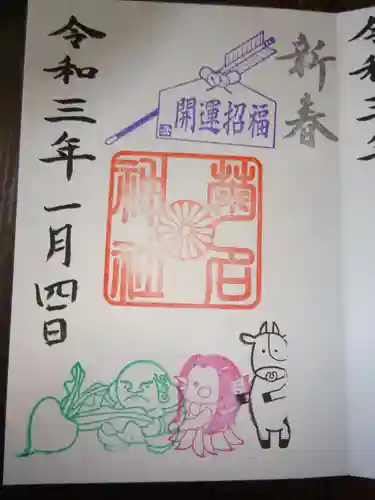 新春
開運招福
菊名
神社
令和三年一月四日
令和三年